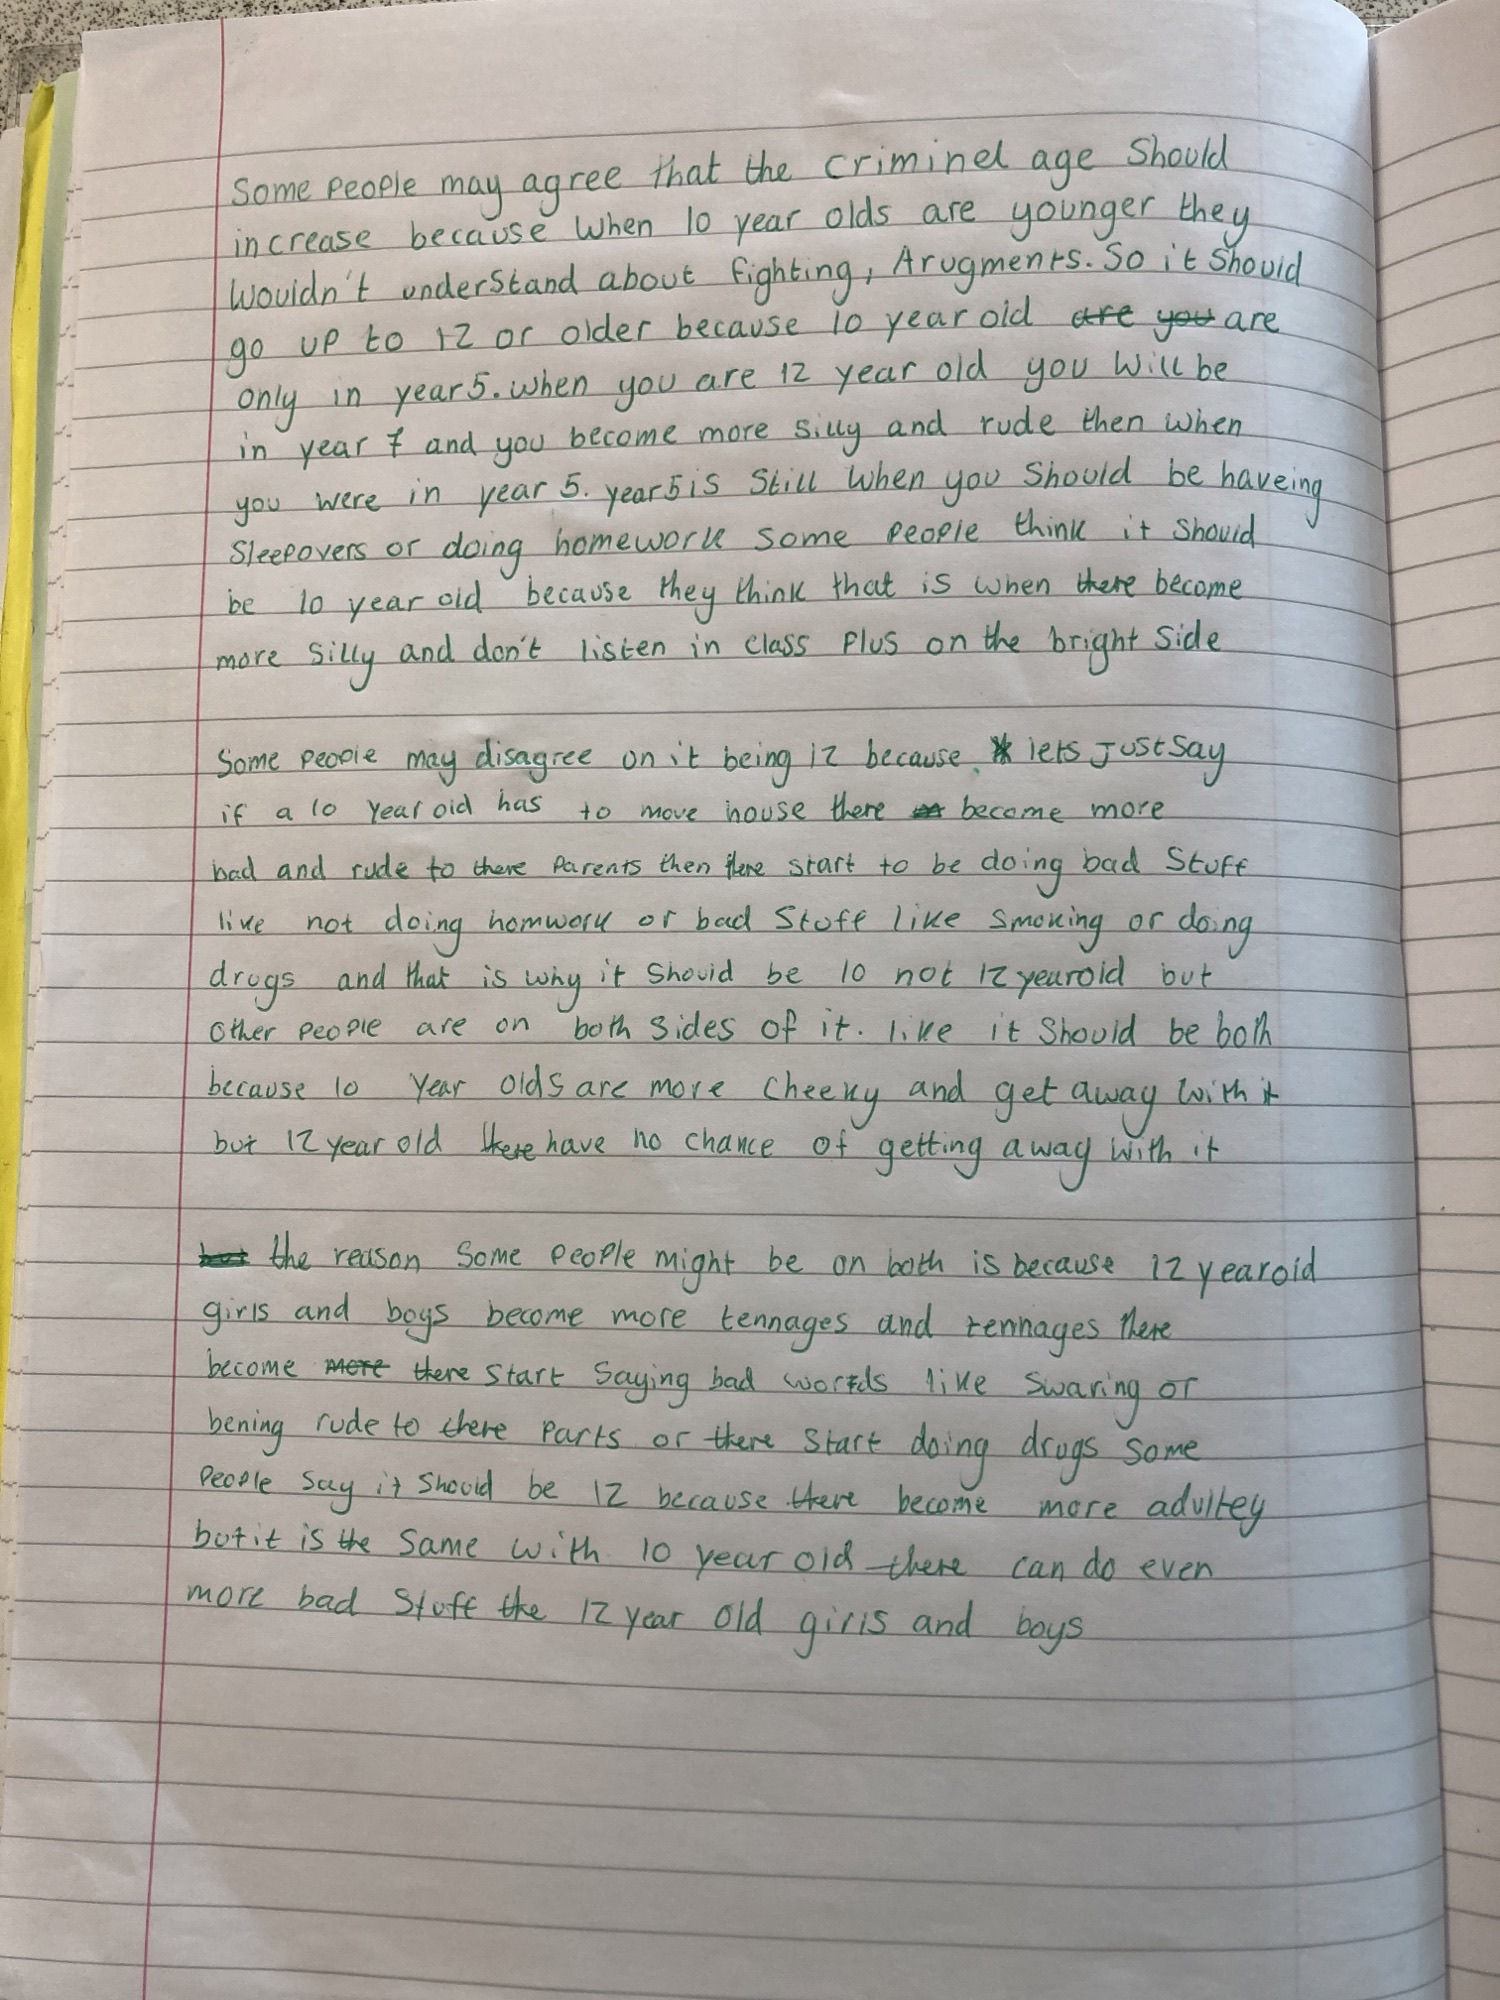 Some people may agree that the criminel age Should
increase because when 10 year olds are younger they
wouldn't understand about fighting, Arugments. So it should
go up to 12 or older because 10 year old are you are
only in year 5. when you are 12 year old you will be
in year 7 and you become more silly and rude then when
you were in year 5. year 5 is still when you should be haveing
sleepovers or doing homework some people think it should
be 10 year old because they think that is when there become
more silly and don't listen in class plus on the bright side
Some people may disagree on it being 12 because lets Just say
if a 10 year old has to move house there become more
bad and rude to there parents then there start to be doing bad stuff
like not doing homwork or bad stuff like smoking or doing
drugs and that is why it should be 10 not 12 year old but
other people are on both sides of it. like it should be both
because 10 year olds are more cheeky and get away with it
but 12 year old there have no chance of getting away with it
but the reason some people might be on both is because 12 year old
girls and boys become more tennages and tennages there
become more there start saying bad words like swaring or
bening rude to there parts or there start doing drugs some
people say it should be 12 because there become more adultey
but it is the same with 10 year old there can do even
more bad stuff the 12 year old girls and boys